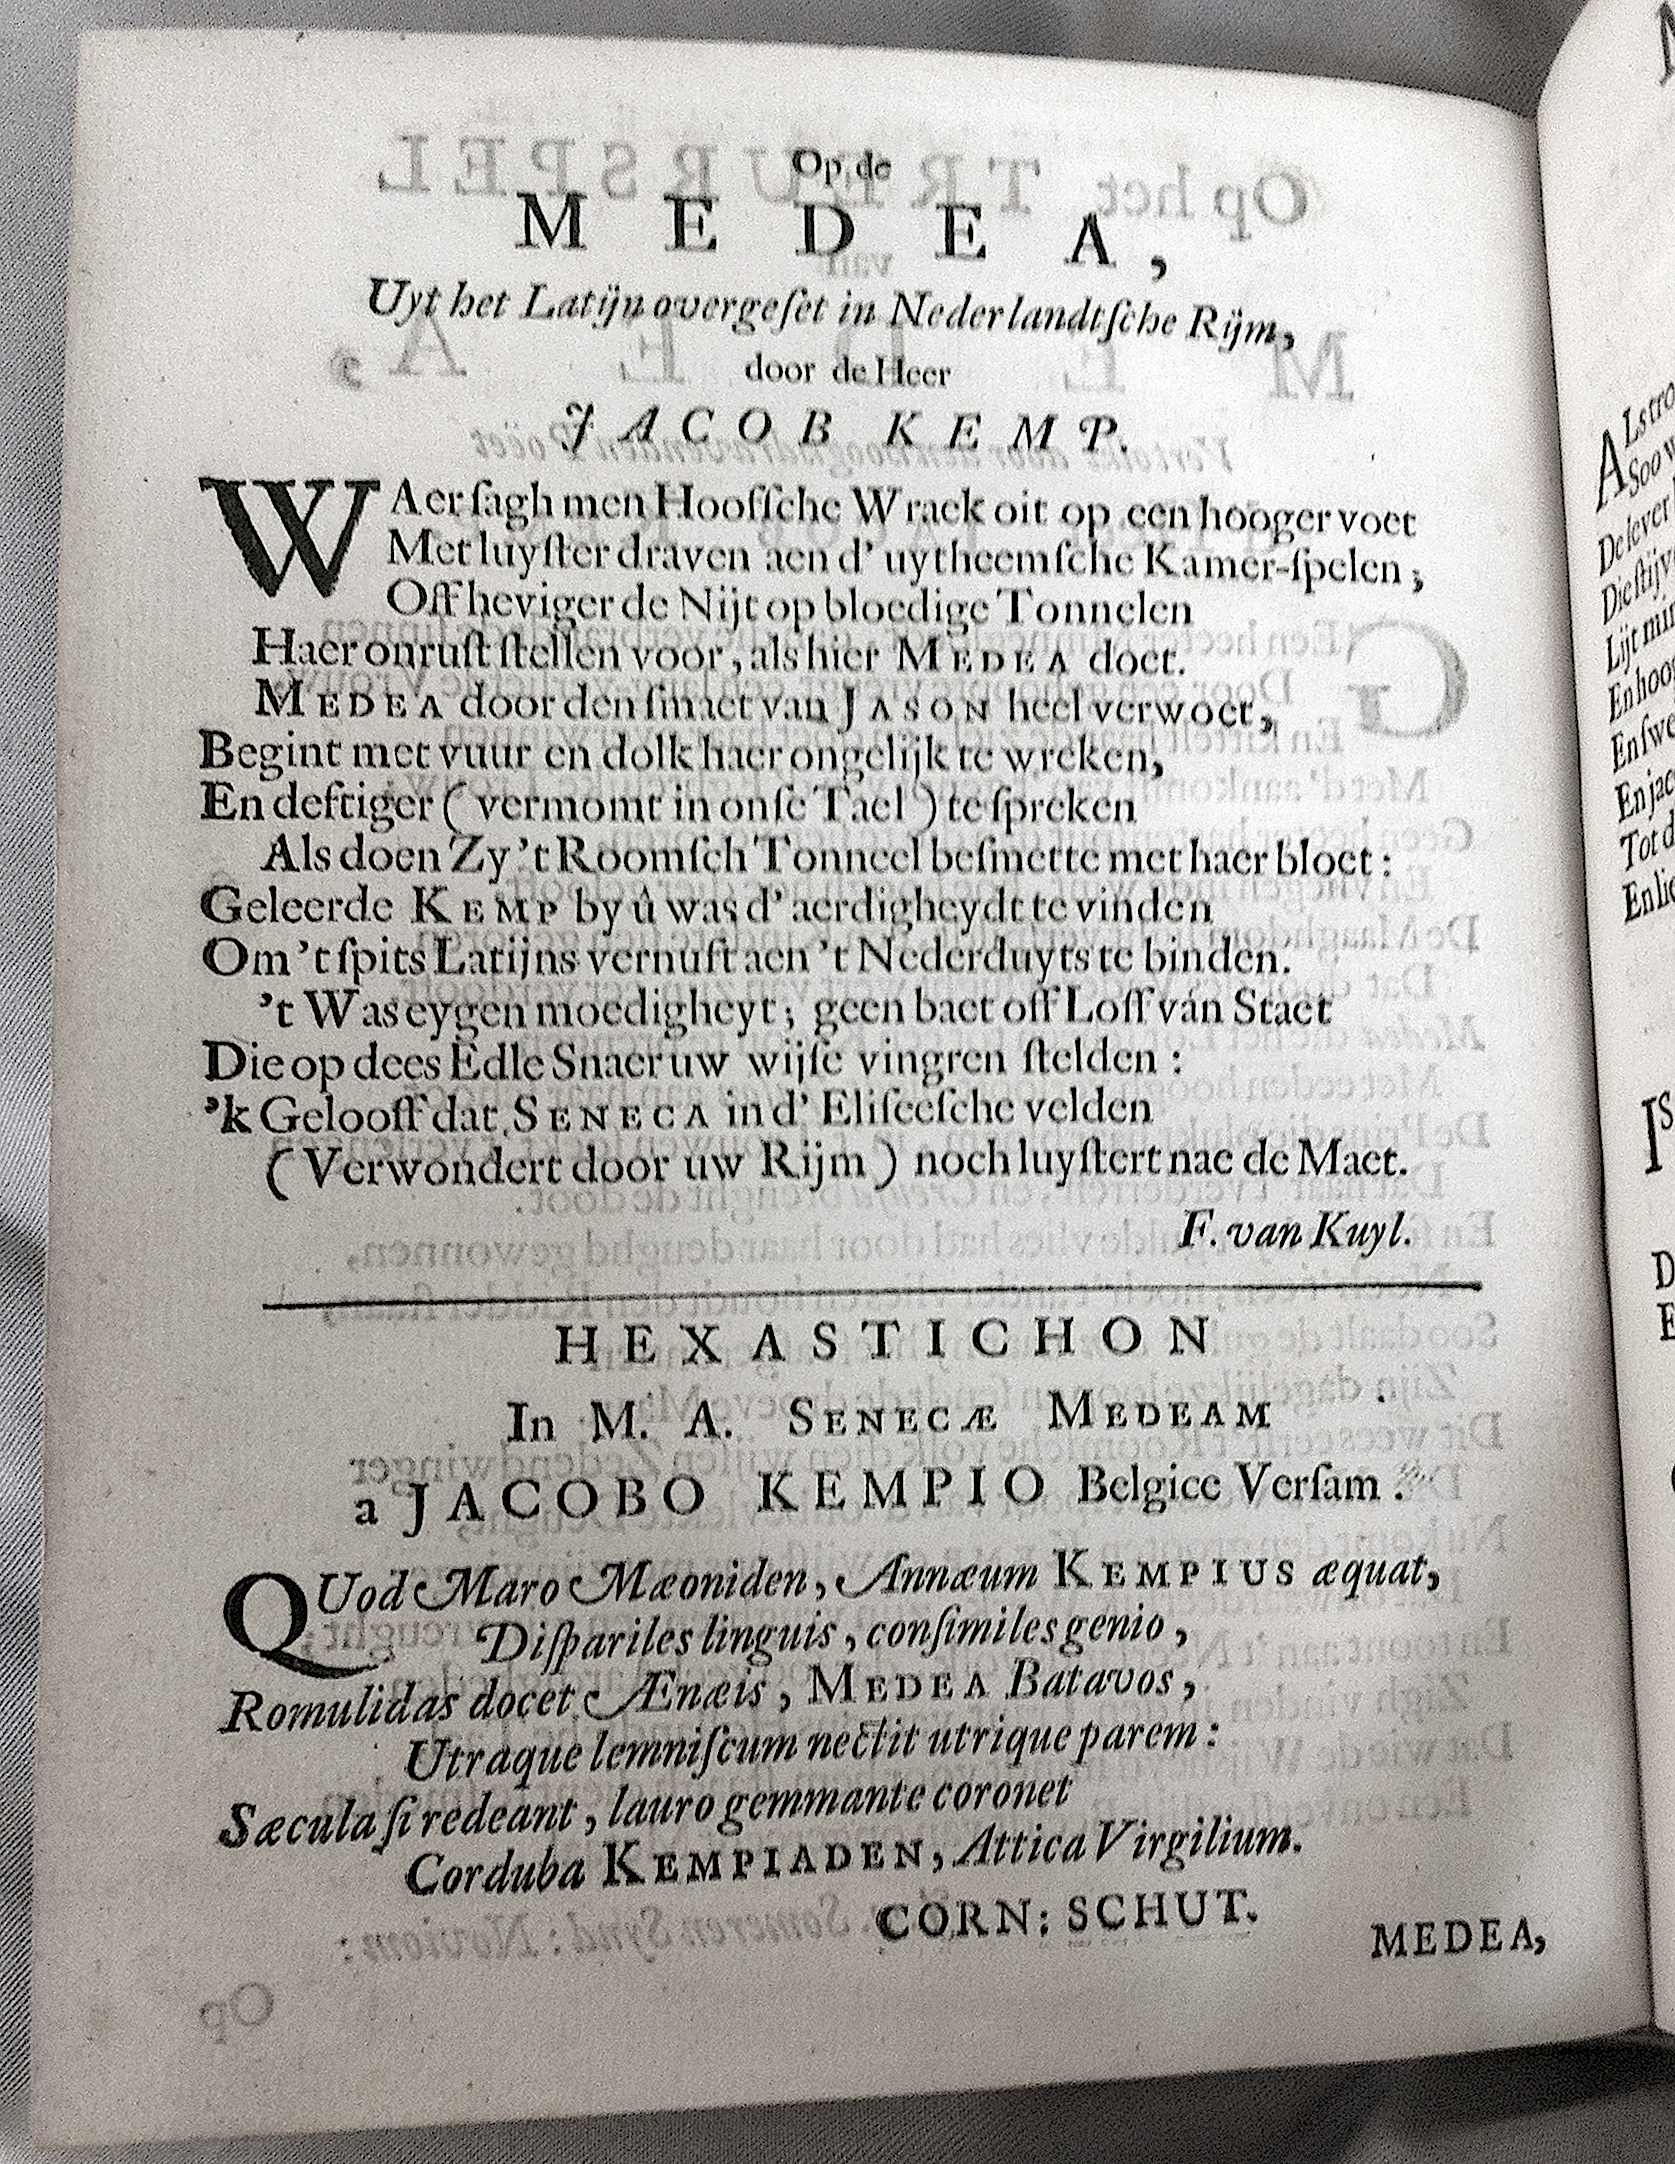 Op de
MEDEA,
Uyt het Latijn overgeſet in Nederlandtſche Rijm,
door de Heer
JACOB KEMP.
WAer ſagh men Hooſſche Wraek oit op een hooger voet
Met luyſter draven aen d' uytheemſche Kamer-ſpelen;
Off heviger de Nijt op bloedige Tonnelen
Haer onruſt ſtellen voor, als hier MEDEA doet.
MEDEA door den ſmaet van JASON heel verwoet,
Begint met vuur en dolk haer ongelijk te wreken,
En deftiger (vermomt in onſe Tael) te ſpreken
Als doen Zy 't Roomſch Tonneel beſmette met haer bloet:
Geleerde KEMP by û was d' aerdigheydt te vinden
Om 't ſpits Latijns vernuft aen 't Nederduyts te binden.
't Was eygen moedigheyt; geen baet off Loff ván Staet
Die op dees Edle Snaer uw wijſe vingren ſtelden:
'k Gelooff dat SENECA in d' Eliſeeſche velden
(Verwondert door uw Rijm) noch luyſtert nae de Maet.
F. van Kuyl.
HEXASTICHON
In M. A. SENECÆ MEDEAM
a JACOBO KEMPIO Belgice Verſam.
QUod Maro Mæoniden, Annæum KEMPIUS æquat,
Diſpariles linguis, conſimiles genio,
Romulidas docet Ænæis, MEDEA Batavos,
Utraque lemniſcum nectit utrique parem:
Sæcula ſi redeant, lauro gemmante coronet
Corduba KEMPIADEN, Attica Virgilium.
CORN: SCHUT.
MEDEA,